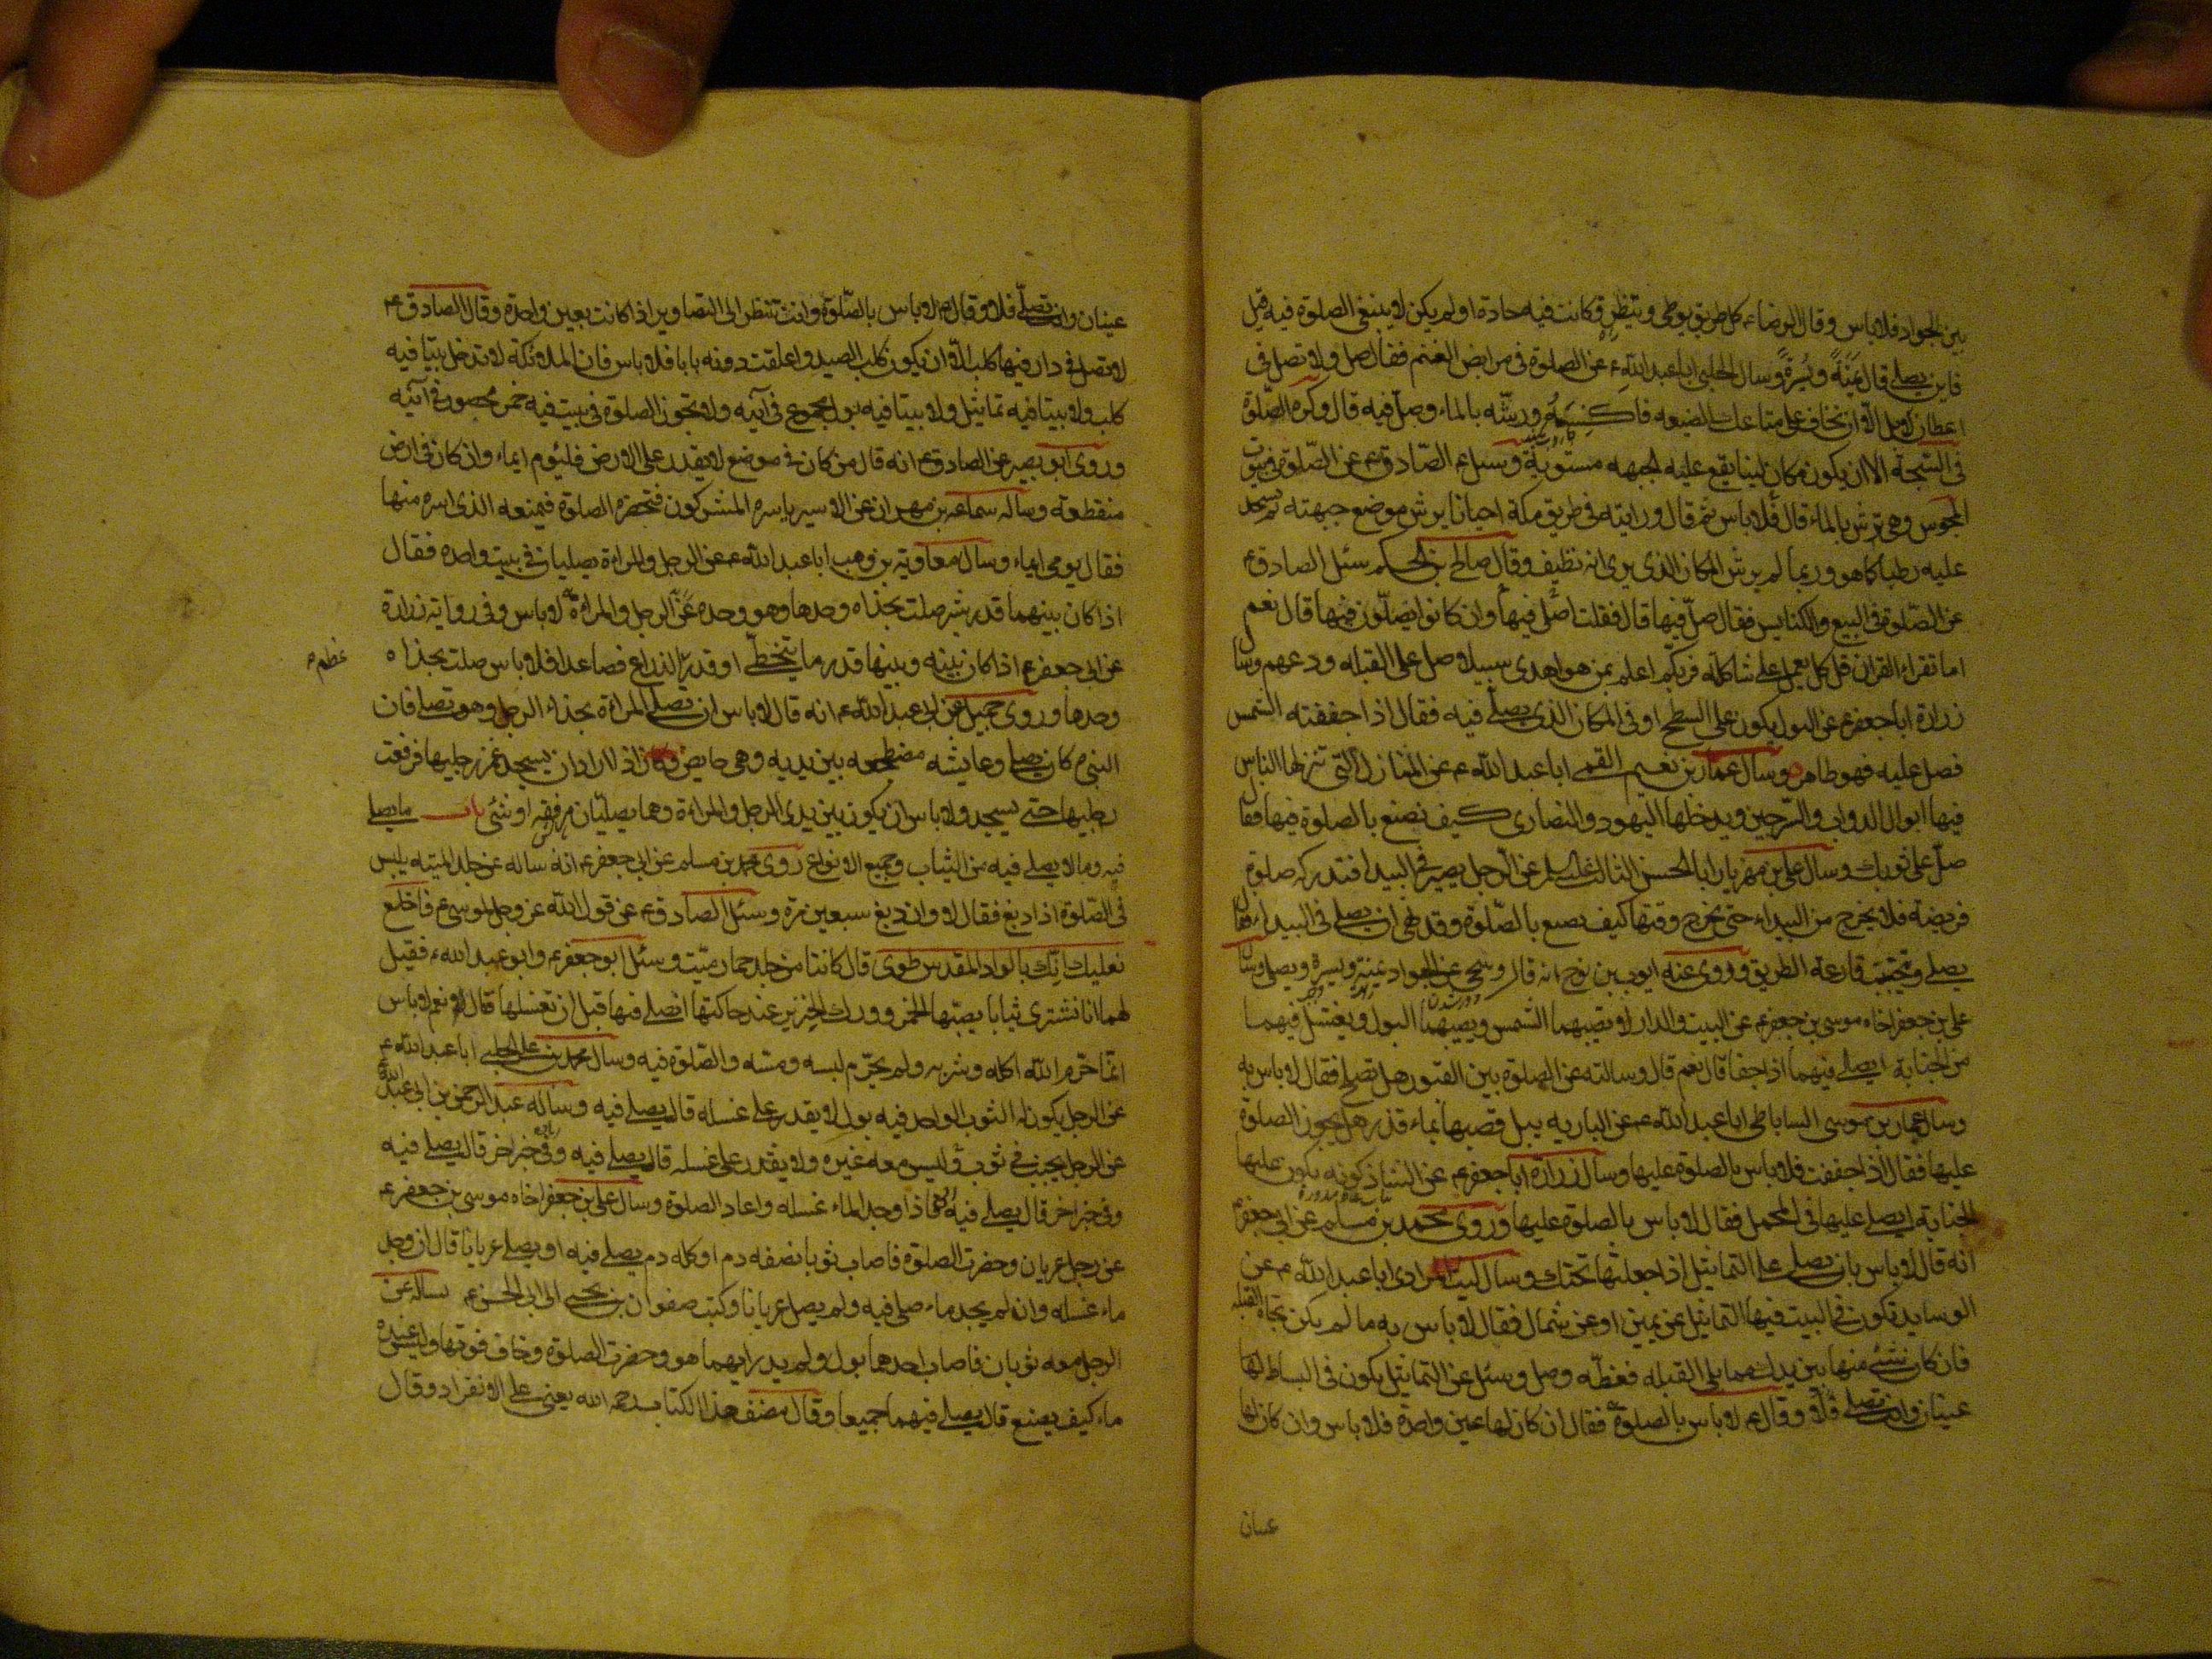 بين الجواد فلا باس وقال الرضاء كل طريق يوطى ويتطرق كانت فيه جادة او لم يكن لا ينبغى الصلوة فيه قيل
فاين يصلى قال يَمنَةً ويُسرةً وسال الحلبى ابا عبد الله ع عن الصلوة فى مرابض الغنم فقال صل ولا تصل فى
اعطان الابل الا ان تخاف على متاعك الضيعه فاكنسه ورشّه بالماء وصلّ فيه قال وكره الصّلوة
فى السّبخة الا ان يكون مكان لينا يقع عليه الجبهه مستوية وسئل ع الصّادق ع عن الصّلوة فى بيوت
المجوس وهى ترش بالماء قال فلا باس ثم قال ورايته فى طريق مكة احيانا يرش موضع جبهته ثم يسجد
عليه رطبا كما هو وربما لم يرش المكان الذى يرى انه نظيف وقال صالح بن الحكم سئل الصادق ع
عن الصّلوة فى البيع والكنايس فقال صلّ فيها قال فقلت اصلّ فيها وان كانوا يصلّون فيها قال نعم
اما تقراء القران قل كل يعمل على شاكلته فربكم اعلم بمن هو اهدى سبيلا وصل على القبله ودعهم وسال
زرارة ابا جعفر ع عن البول يكون على السطح او فى المكان الذى يصلّى فيه فقال اذا جففته الشمس
فصل عليه فهو طاهر وسال عمار بن نعيم القمى ابا عبد الله ع عن المنازل التى تنزلها الناس
فيها ابوال الدواب والسّرجين ويدخلها اليهود والنصارى كيف نصنع بالصلوة فيها فقال
صلّ على ثوبك وسال على بن مهزيار ابا الحسن الثالث عن الرّجل يصير فى البيداء فتدركه صلوة
فريضة فلا يخرج من البيداء حتى يخرج وقتها كيف يصنع بالصّلوة وقد نهى ان يصلى فى البيداء فقال
يصلى ويتجنب قارعة الطريق وروى عنه ايوب بن نوح انه قال وتنحى عن الجواد يمنة ويسرة ويصلى وسال
على بن جعفر اخاه موسى بن جعفر ع عن البيت والدار لا تصيبهما الشمس ويصيبهما البول ويغتسل فيهما
من الجنابة ايصلى فيهما اذا جفا قال نعم قال وسالته عن الصلوة بين القبور هل تصلح فقال لا باس به
وسال عمار بن موسى الساباطى ابا عبد الله ع عن الباريه يبل قصبها بماء قذر هل يجوز الصلوة
عليها فقال اذا جففت فلا باس بالصلوة عليها وسال زرارة ابا جعفر ع عن الشاذكونه يكون عليها
الجنابة ايصلى عليها فى المحمل فقال لا باس بالصلوة عليها وروى محمد بن مسلم عن ابى جعفر ع
انه قال لا باس بان يصلى على التماثيل اذا جعلتها تحتك وسال ليث المرادى ابا عبد الله ع عن
الوسايد تكون فى البيت فيها التماثيل عن يمين او عن شمال فقال لا باس به ما لم يكن تجاه القبله
فان كان شئ منها بين يديك مما يلى القبله فغطّه وصل وسئل عن التماثيل يكون فى البساط لها
عينان وانت تصلى فلا وقال ع لا باس بالصلوة فقال ان كان لها عين واحدة فلا باس وان كان لها
عينان
عينان وانت تصلّى فلا وقال ع لا باس بالصّلوة وانت تنظر الى التصاوير اذا كانت بعين واحدة وقال الصادق ع
لا تصل فى دار فيها كلب الّا ان يكون كلب الصيد واغلقت دونه بابا فلا باس فان الملائكة لا تدخل بيتا فيه
كلب ولا بيتا فيه تماثيل ولا بيتا فيه بول مجموع فى آنيه ولا يجوز الصلوة فى بيت فيه خمر محصور فى آنيه
وروى ابو بصير عن الصادق ع انه قال من كان فى موضع لا يقدر على الارض فليوم ايماء وان كان فى ارض
منقطعة وساله سماعه بن مهران عن الاسير ياسره المشركون فتحضره الصلوة فيمنعه الذى اسره منها
فقال يومى ايماء وسال معاوية بن وهب ابا عبد الله ع عن الرجل والمراة يصليان فى بيت واحد فقال
اذا كان بينهما قدر شبر صلت بحذاه وحدها وهو وحده عن الرجل والمراة لا باس وفى رواية زرارة
عن ابى جعفر ع اذا كان بينه وبينها قدر ما يتخطّى او قدر الذراع فصاعدا فلا باس صلت بحذاه
عظم م
وحدها وروى جميل عن ابى عبد الله ع انه قال لا باس ان تصلى المراة بحذاء الرجل وهو تصلى فان
النبى م كان يصلى وعايشه مضطجعه بين يديه وهى حايض وكان اذا اراد ان يسجد غمز رجليها فرفعت
رجليها حتى يسجد ولا باس ان يكون بين يدى الرجل والمراءة وهما يصليان مرفقه او شئ باب ما يصلى
فيه وما لا يصلى فيه من الثياب وجميع الانواع روى محمد بن مسلم عن ابى جعفر ع انه ساله عن جلد الميته يلبس
فى الصّلوة اذا دبغ فقال لا وان دبغ سبعين مرة وسئل الصادق ع عن قول الله عز وجل لموسى ع فاخلع
نعليك انك بالواد المقدس طوى قال كانتا من جلد حمار ميّت وسئل ابو جعفر ع وابو عبد الله ع فقيل
لهما انا نشترى ثيابا يصيبها الخمر وودك الخنزير عند حاكتها انصلى فيها قبل ان تغسلها قال نعم لا باس
انما حرّم الله اكله وشربه ولم يحرّم لبسه ومسّه والصّلوة فيه وسال محمد بن على الحلبى ابا عبد الله ع
عن الرجل يكون له الثوب الواحد فيه بول لا يقدر على غسله قال يصلى فيه وساله عبد الرحمن بن ابى عبد الله
عن الرجل يجنب فى ثوب وليس معه غيره ولا يقدر على غسله قال يصلى فيه وفى خبر اخر قال يصلى فيه
وفى خبر اخر قال يصلى فيه فاذا وجد الماء غسله واعاد الصلوة وسال على بن جعفر اخاه موسى بن جعفر ع
عن رجل عريان وحضرت الصلوة فاصاب ثوبا نصفه دم او كله دم يصلى فيه او يصلى عريانا قال ان وجد
ماء غسله وان لم يجد ماء صلى فيه ولم يصل عريانا وكتب صفوان بن يحيى الى ابى الحسن ع يساله عن
الرجل معه ثوبان فاصاب احدهما بول ولم يدر ايهما هو وحضرت الصلوة وخاف فوتها وليس عنده
ماء كيف يصنع قال يصلى فيهما جميعا وقال مصنف هذا الكتاب رحمه الله يعنى على الانفراد وقال